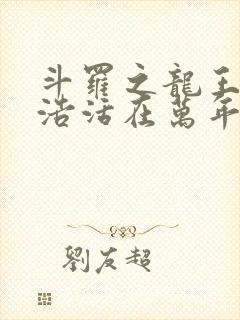 斗羅之龍王
浩活在萬年
劉友超